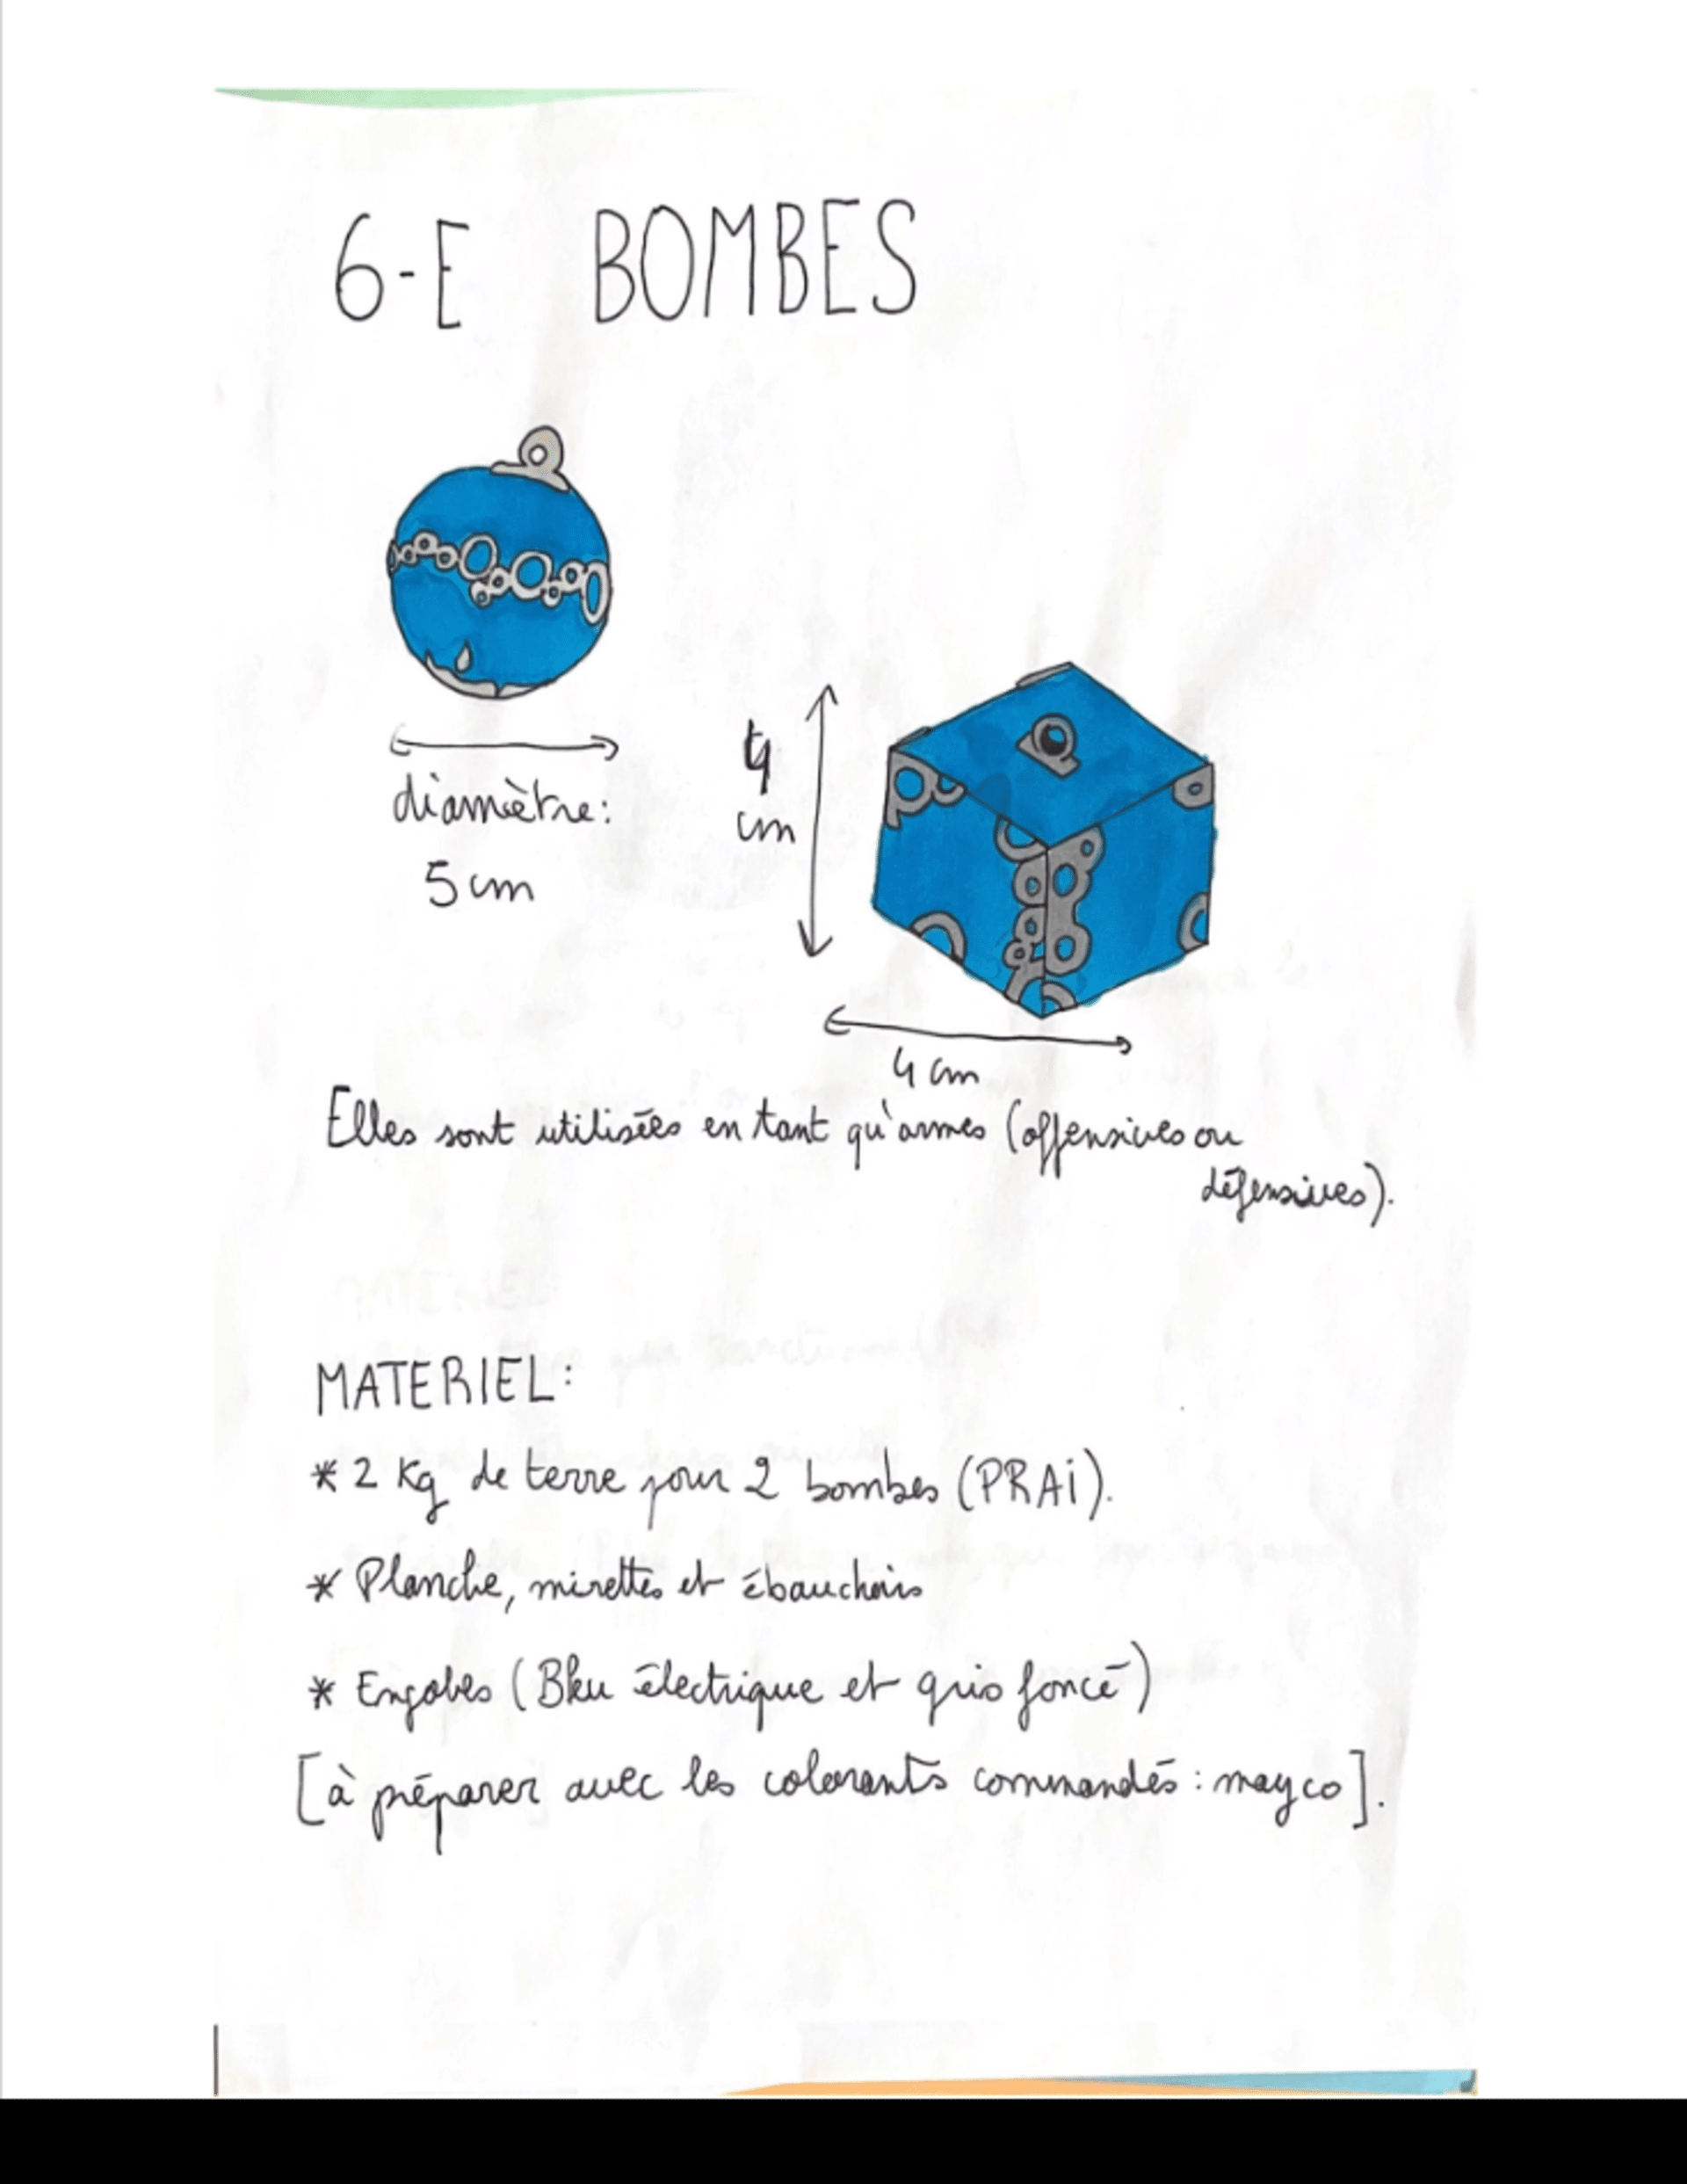 6-E BOMBES
diamètre:
5 cm
4
cm
4 cm
Elles sont utilisées en tant qu'armes (offensives ou
défensives).
MATERIEL:
* 2 Kg de terre pour 2 bombes (PRAi).
* Planche, mirettes et ébauchoirs
* Engobes (Bleu électrique et gris foncé)
[à préparer avec les colorants commandés : mayco].